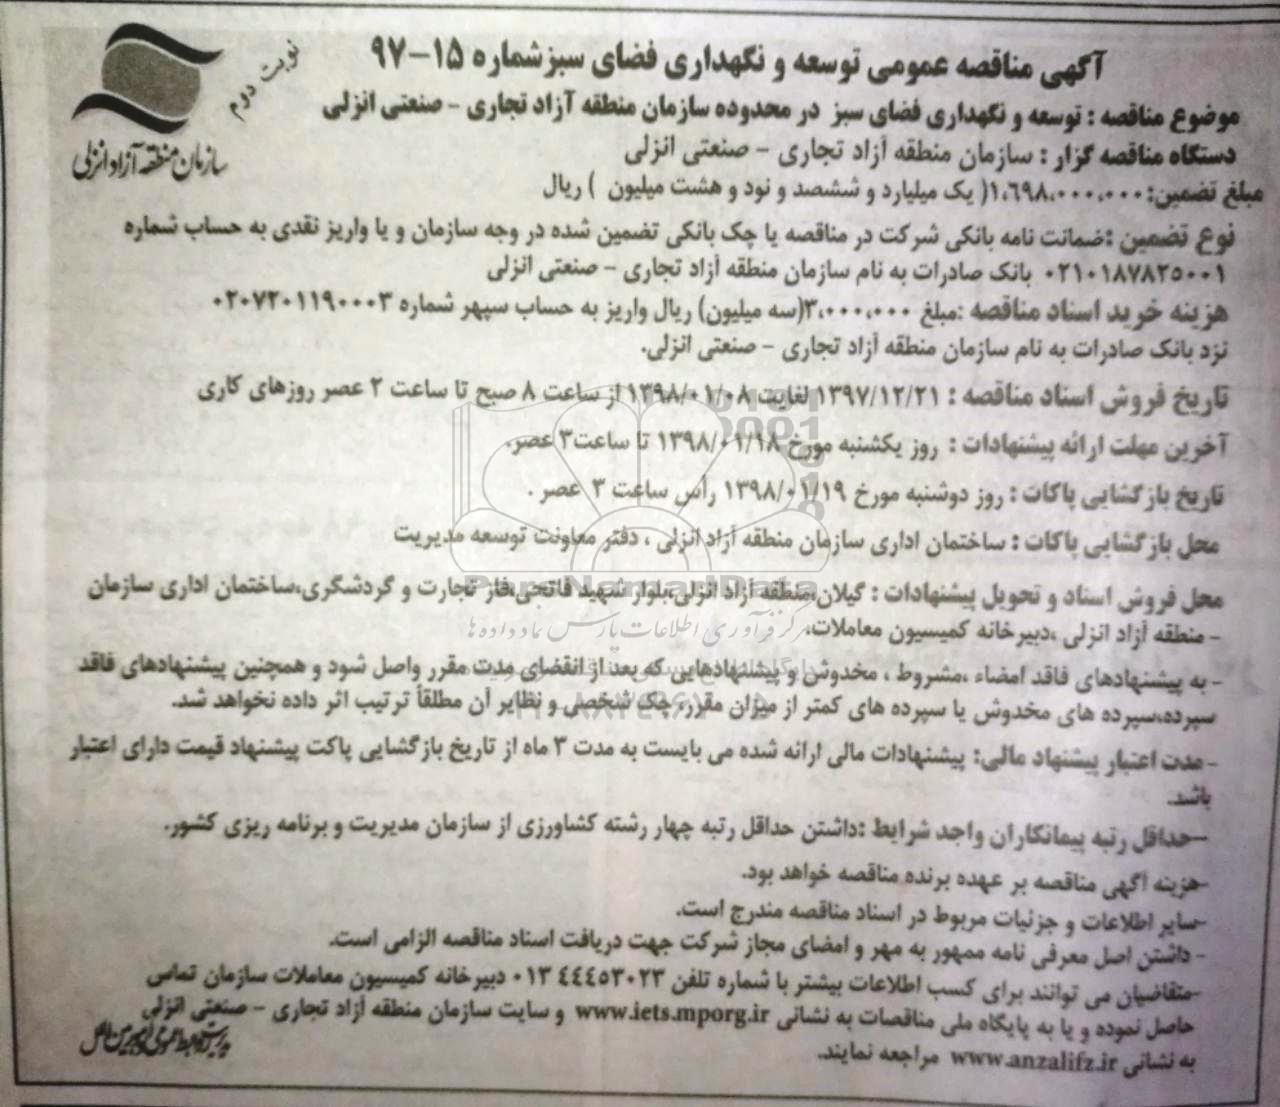 آگهی مناقصه عمومی توسعه و نگهداری فضای سبز شماره ۱۵-۹۷
نوبت دوم
سازمان منطقه آزاد انزلی
موضوع مناقصه : توسعه و نگهداری فضای سبز در محدوده سازمان منطقه آزاد تجاری - صنعتی انزلی
دستگاه مناقصه گزار : سازمان منطقه آزاد تجاری - صنعتی انزلی
مبلغ تضمین: ۱،۶۹۸،۰۰۰،۰۰۰( یک میلیارد و ششصد و نود و هشت میلیون ) ریال
نوع تضمین :ضمانت نامه بانکی شرکت در مناقصه یا چک بانکی تضمین شده در وجه سازمان و یا واریز نقدی به حساب شماره
۰۲۱۰۱۸۷۸۲۵۰۰۱ بانک صادرات به نام سازمان منطقه آزاد تجاری - صنعتی انزلی
هزینه خرید اسناد مناقصه :مبلغ ۳،۰۰۰،۰۰۰(سه میلیون) ریال واریز به حساب سپهر شماره ۰۲۰۷۲۰۱۱۹۰۰۰۳
نزد بانک صادرات به نام سازمان منطقه آزاد تجاری - صنعتی انزلی.
تاریخ فروش اسناد مناقصه : ۱۳۹۷/۱۲/۲۱ لغایت ۱۳۹۸/۰۱/۰۸ از ساعت ۸ صبح تا ساعت ۲ عصر روزهای کاری
آخرین مهلت ارائه پیشنهادات : روز یکشنبه مورخ ۱۳۹۸/۰۱/۱۸ تا ساعت۳ عصر.
تاریخ بازگشایی پاکات : روز دوشنبه مورخ ۱۳۹۸/۰۱/۱۹ رأس ساعت ۳ عصر .
محل بازگشایی پاکات : ساختمان اداری سازمان منطقه آزاد انزلی ، دفتر معاونت توسعه مدیریت
ParsNamadData
محل فروش اسناد و تحویل پیشنهادات : گیلان،منطقه آزاد انزلی،بلوار شهید فاتحی،فاز تجارت و گردشگری،ساختمان اداری سازمان
- منطقه آزاد انزلی ،دبیرخانه کمیسیون معاملات.
مرکز فرآوری اطلاعات پارس نماد داده ها
- به پیشنهادهای فاقد امضاء ،مشروط ، مخدوش و پیشنهادهایی که بعد از انقضای مدت مقرر واصل شود و همچنین پیشنهادهای فاقد
سپرده،سپرده های مخدوش یا سپرده های کمتر از میزان مقرر، چک شخصی و نظایر آن مطلقاً ترتیب اثر داده نخواهد شد.
- مدت اعتبار پیشنهاد مالی: پیشنهادات مالی ارائه شده می بایست به مدت ۳ ماه از تاریخ بازگشایی پاکت پیشنهاد قیمت دارای اعتبار
باشد.
-حداقل رتبه پیمانکاران واجد شرایط :داشتن حداقل رتبه چهار رشته کشاورزی از سازمان مدیریت و برنامه ریزی کشور.
-هزینه آگهی مناقصه بر عهده برنده مناقصه خواهد بود.
-سایر اطلاعات و جزئیات مربوط در اسناد مناقصه مندرج است.
- داشتن اصل معرفی نامه ممهور به مهر و امضای مجاز شرکت جهت دریافت اسناد مناقصه الزامی است.
-متقاضیان می توانند برای کسب اطلاعات بیشتر با شماره تلفن ۴۴۴۵۳۰۲۳ ۰۱۳ دبیرخانه کمیسیون معاملات سازمان تماس
حاصل نموده و یا به پایگاه ملی مناقصات به نشانی www.iets.mporg.ir و سایت سازمان منطقه آزاد تجاری - صنعتی انزلی
به نشانی www.anzalifz.ir مراجعه نمایند.